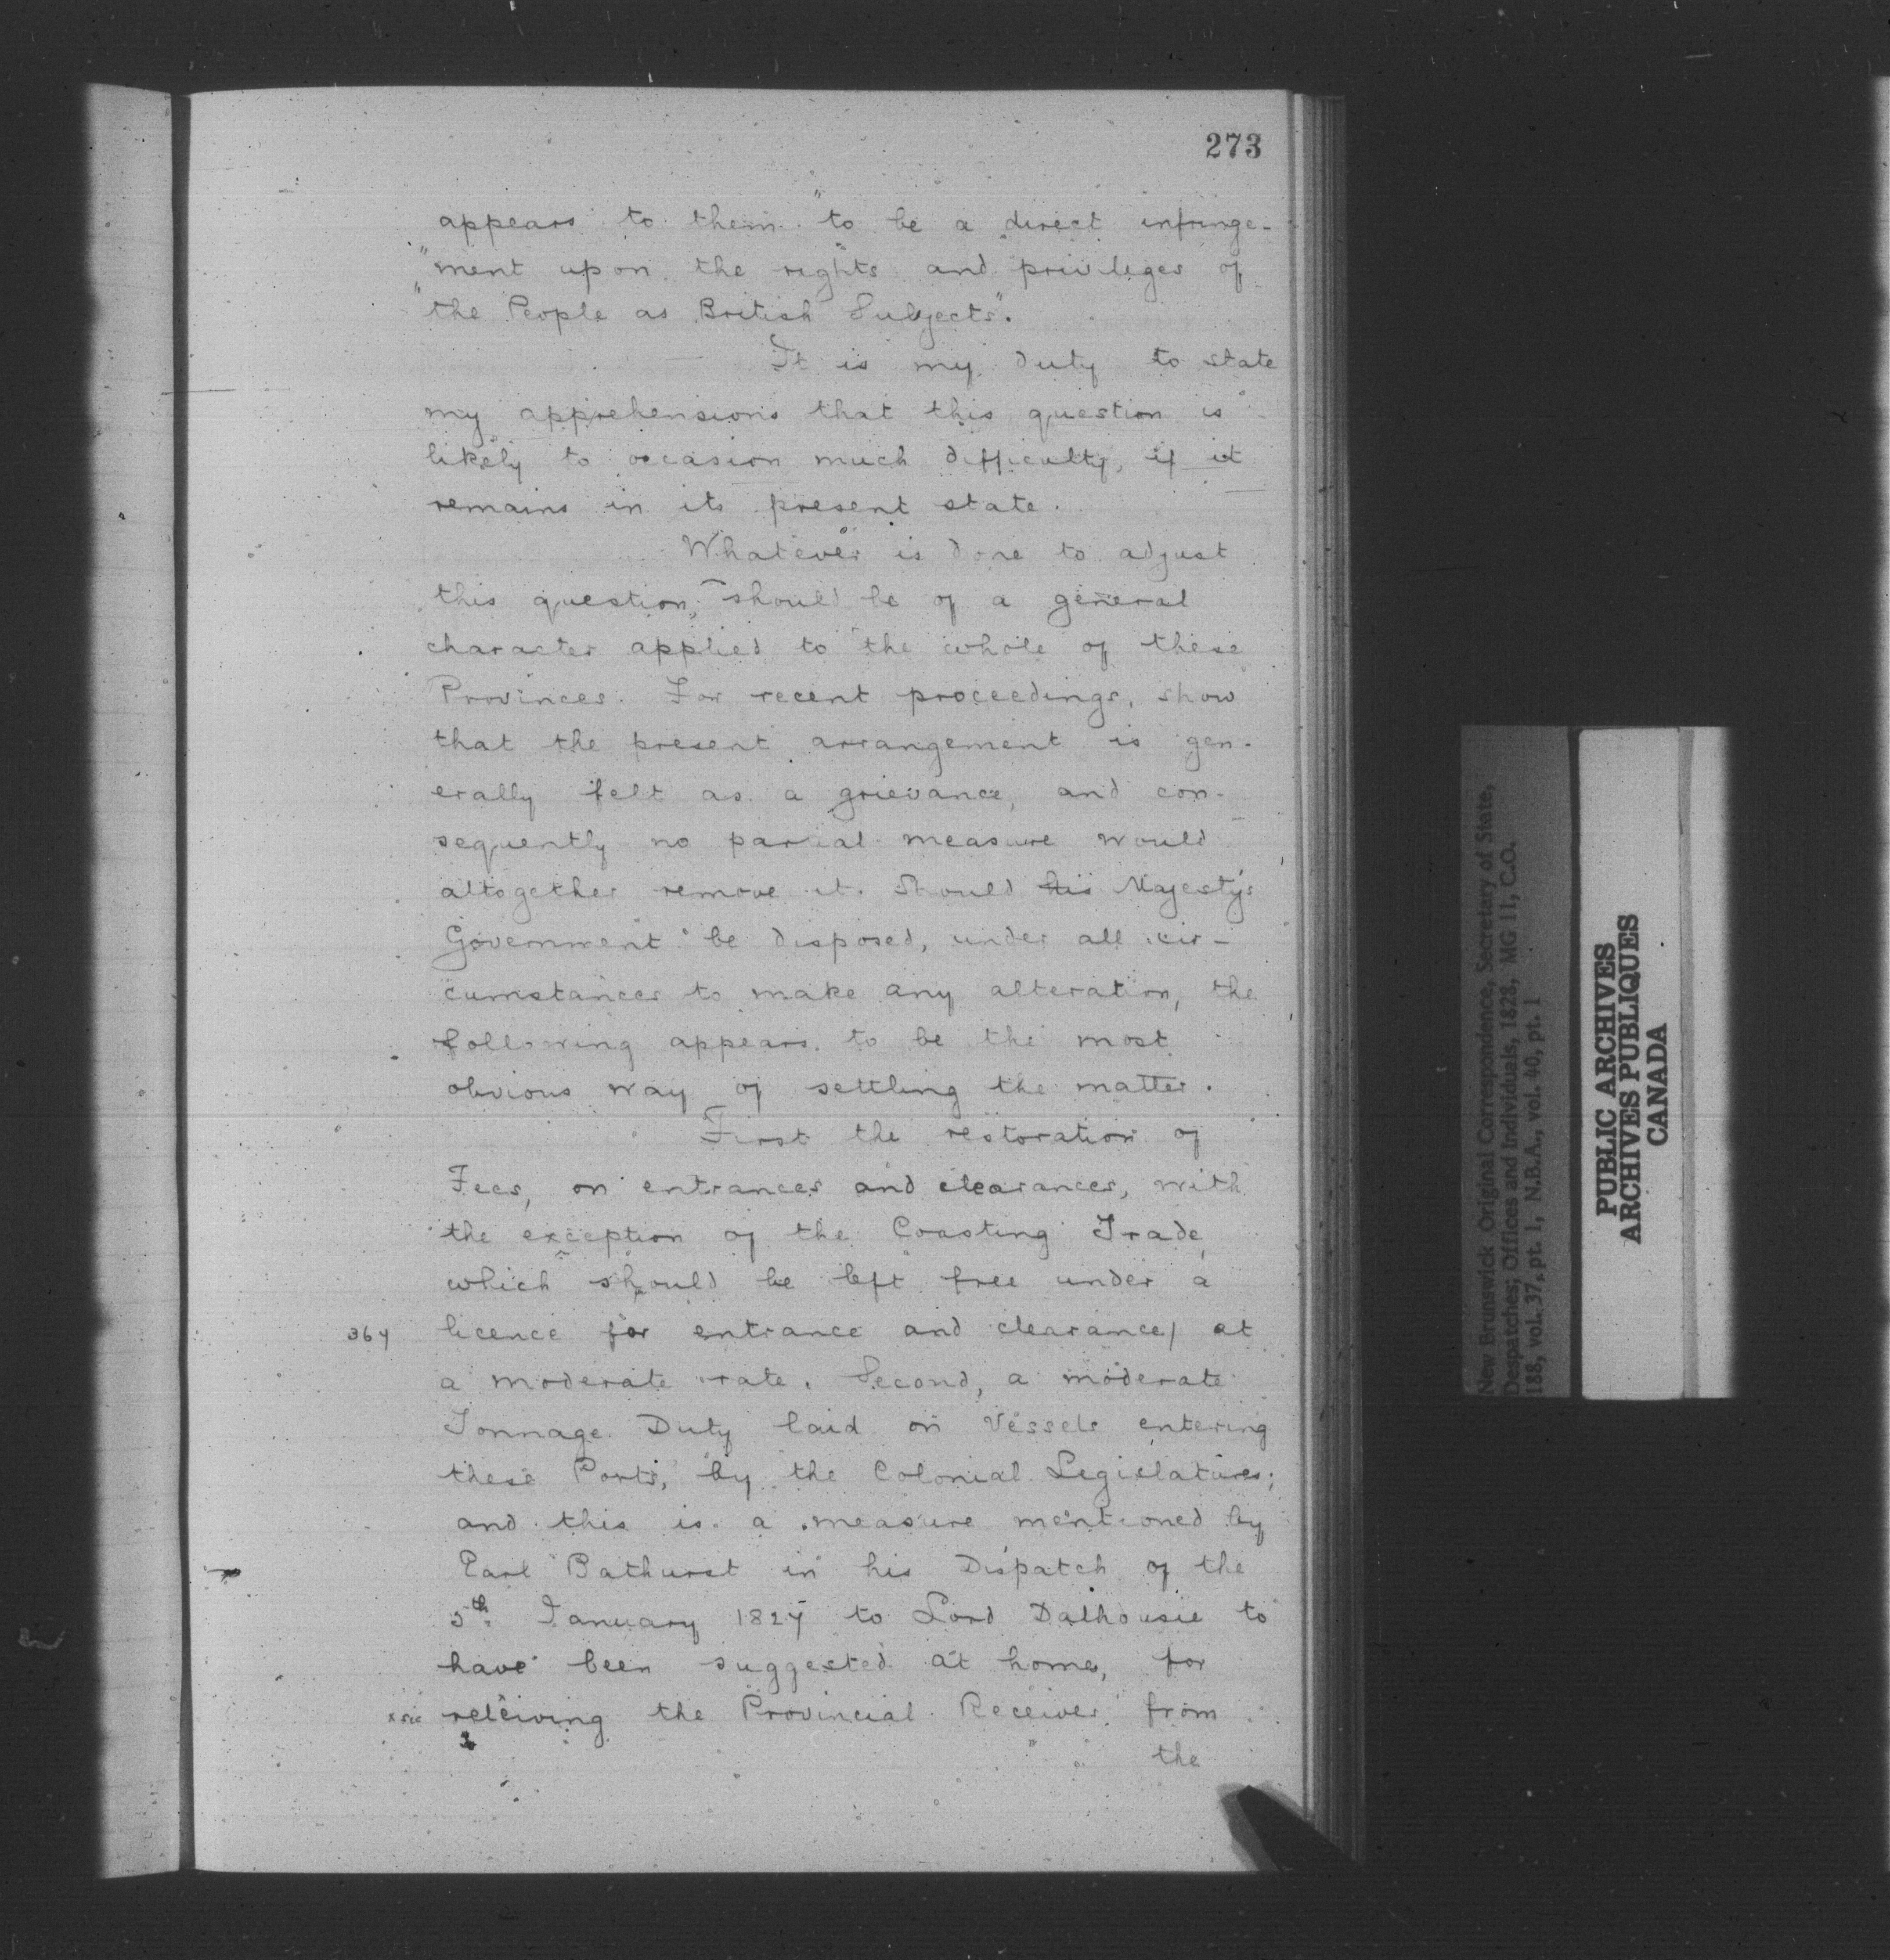 273
appears to them "to be a direct infringe-
"ment upon the rights and privileges of
"the People as British Subjects".
It is my duty to state
my apprehensions that this question is
likely to occasion much difficulty, if it
remains in its present state.
Whatever is done to adjust
this question, should be of a general
character applied to the whole of these
Provinces. For recent proceedings, show
that the present arrangement is gen-
erally felt as a grievance, and con-
sequently no partial measure would
altogether remove it. Should his Majesty's
Government be disposed, under all cir-
cumstances to make any alteration, the
following appears to be the most
obvious way of settling the matter.
First the restoration of
Fees, on entrances and clearances, with
the exception of the Coasting Trade,
which should be left free under a
364 licence for entrance and clearance, at
a moderate rate. Second, a moderate
Tonnage Duty laid on Vessels entering
these Ports, by the Colonial Legislatures;
and this is a measure mentioned by
Earl Bathurst in his Dispatch of the
5th January 1827 to Lord Dalhousie to
have been suggested at home, for
x sic releiving the Provincial Receiver from
the
New Brunswick Original Correspondence, Secretary of State,
Despatches; Offices and Individuals, 1828, MG 11, C.O.
188, vol. 37, pt. 1, N.B.A., vol. 40, pt. 1
PUBLIC ARCHIVES
ARCHIVES PUBLIQUES
CANADA